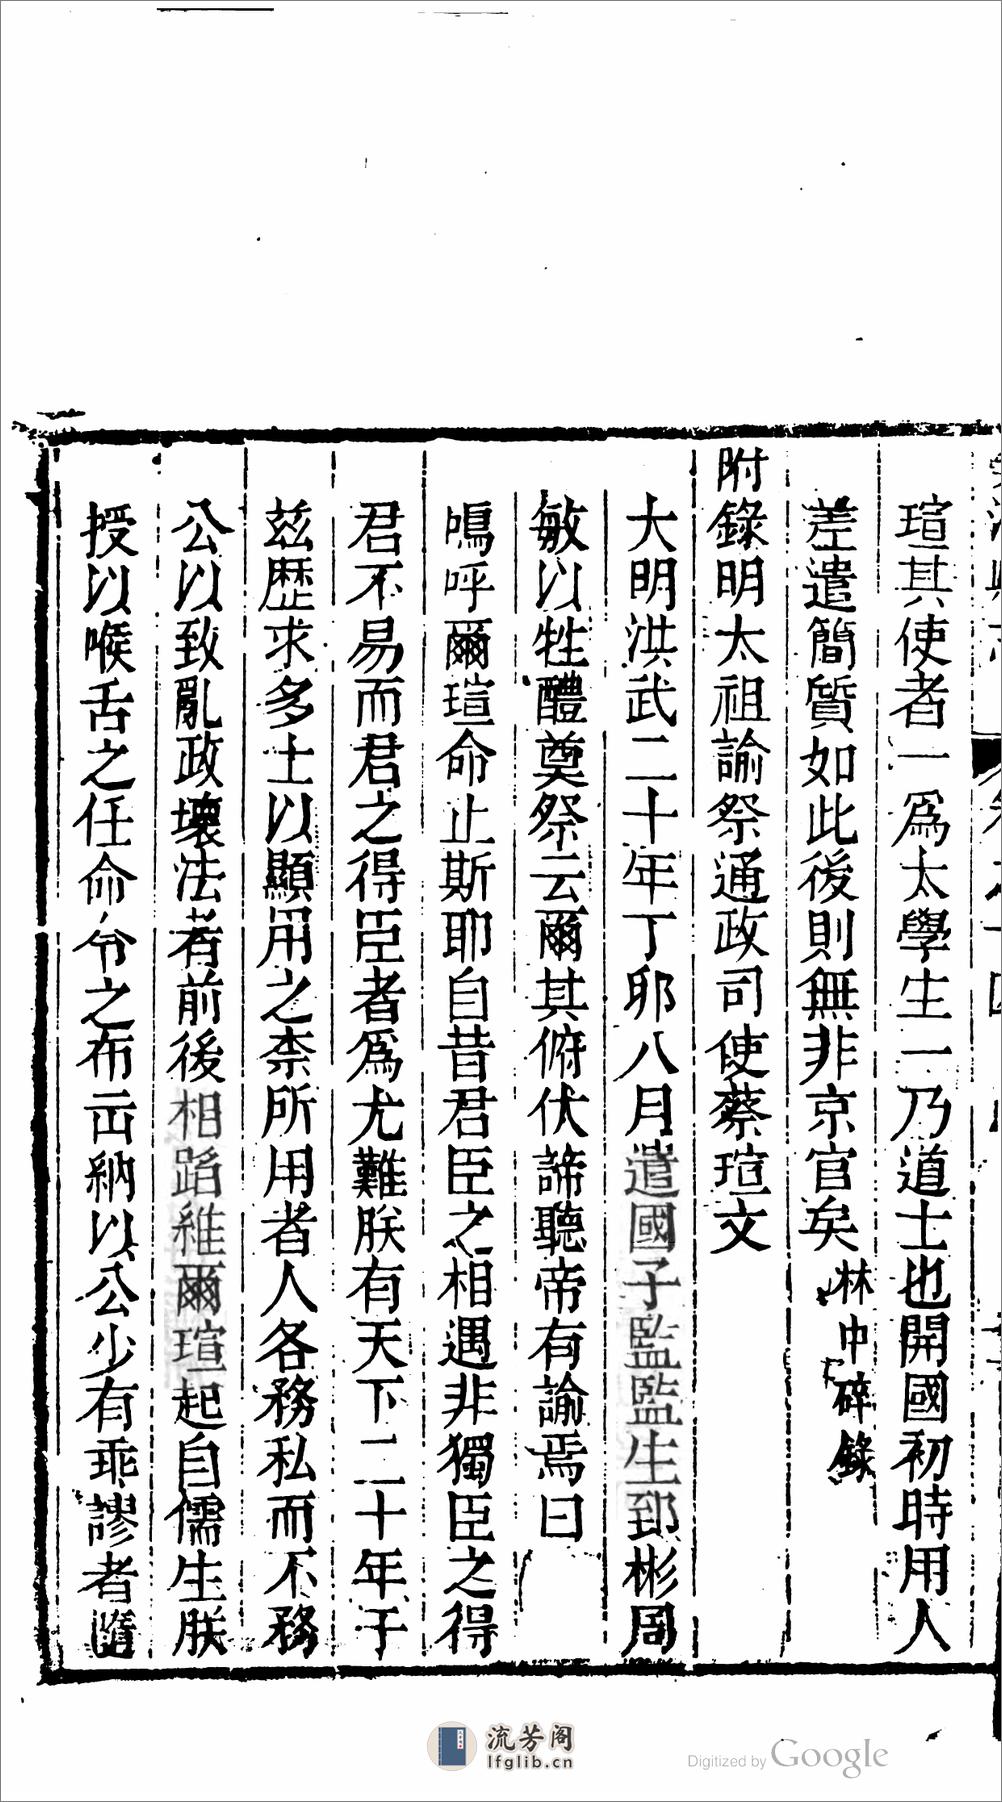 瑄其使者一爲太學生一乃道士也開國初時用人
差遣簡質如此後則無非京官矣林中碎錄
附錄明太祖諭祭通政司使蔡瑄文
大明洪武二十年丁卯八月遣國子監監生郅彬周
敏以牲醴奠祭云爾其俯伏諦聽帝有諭焉曰
嗚呼爾瑄命止斯耶自昔君臣之相遇非獨臣之得
君不易而君之得臣者爲尤難朕有天下二十年于
兹歷求多士以顯用之柰所用者人各務私而不務
公以致亂政壞法者前後相蹈維爾瑄起自儒生朕
授以喉舌之任命令之布出納以公少有乖謬者隨
流芳阁
lfglib.cn
Digitized by Google